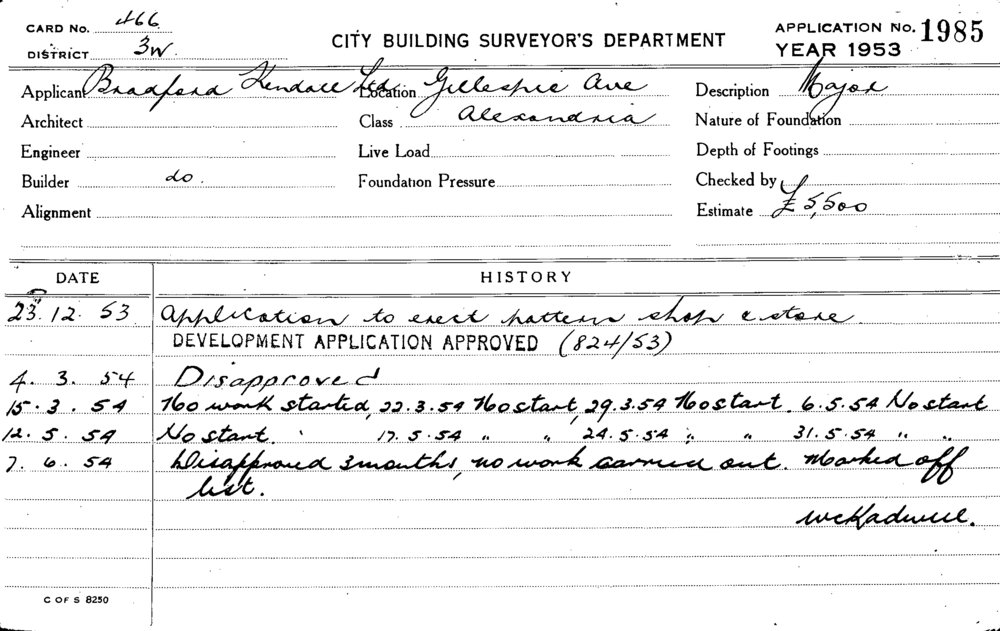 CARD No. 466
DISTRICT 3W.
CITY BUILDING SURVEYOR'S DEPARTMENT
APPLICATION No. 1985
YEAR 1953
Applicant Bradford Kendall Ltd. Location Gillespie Ave Description Major
Architect Class Alexandria Nature of Foundation
Engineer Live Load Depth of Footings
Builder do. Foundation Pressure Checked by
Alignment Estimate £5,500
DATE HISTORY
23.12.53 Application to erect pattern shop & store
DEVELOPMENT APPLICATION APPROVED (824/53)
4.3.54 Disapproved
15.3.54 No work started, 22.3.54 No start, 29.3.54 No start. 6.5.54 No start
12.5.54 No start. 17.5.54 " " 24.5.54 " " 31.5.54 " "
7.6.54 Disapproved 3 months, no work carried out. Marked off
list.
C OF S 8250